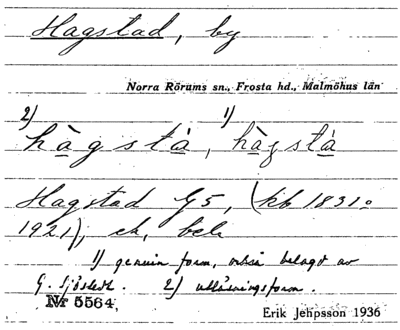 Hagstad, by
Norra Rörums sn., Frosta hd., Malmöhus län
2) 1)
hàgstá, hàgstá
Hagstad G5, (kb 1831o
1921), ek, beb
1) genuin form, också belagd av
G. Sjöstedt. 2) utläsningsform.
Nr 5564,
Erik Jeppsson 1936